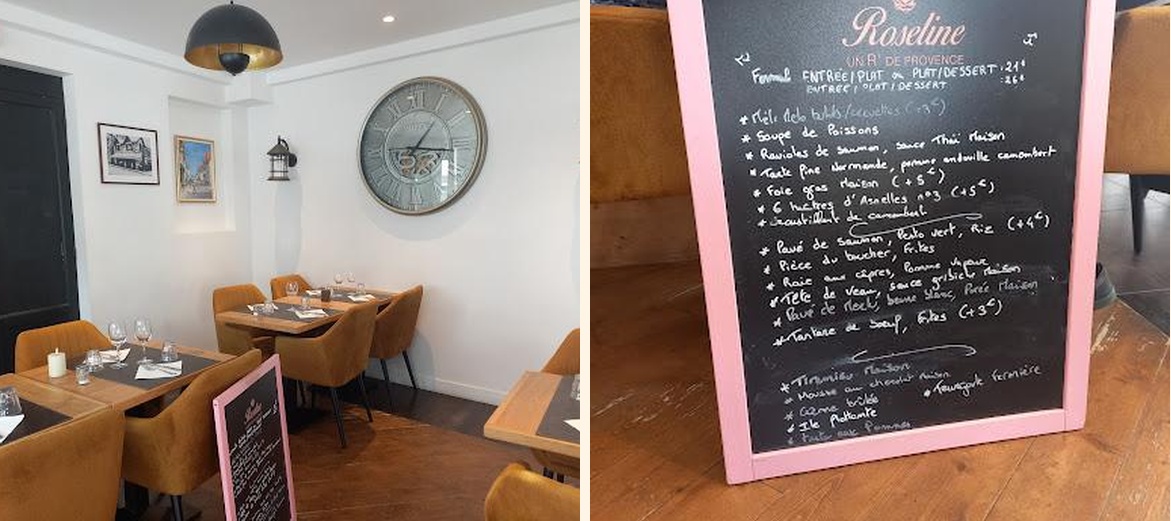 Roseline
UN R' DE PROVENCE
Formule ENTRÉE/PLAT ou PLAT/DESSERT : 21€
ENTRÉE / PLAT / DESSERT : 26€
* Méli Mélo bulots/crevettes (+3€)
* Soupe de Poissons
* Ravioles de saumon, sauce Thaï Maison
* Tarte fine Normande, pomme andouille camembert
* Foie gras Maison (+5€)
* 6 huîtres d'Asnelles n°3 (+5€)
* croustillant de camembert
* Pavé de saumon, Pesto vert, Riz (+4€)
* Pièce du boucher, frites
* Raie aux câpres, Pomme vapeur
* Tête de veau, sauce gribiche Maison
* Pavé de Merlu, beurre blanc, Purée Maison
* Tartare de boeuf, frites (+3€)
* Tiramisu Maison
* Mousse au chocolat maison
* Teurgoule fermière
* Crème brûlée
* Ile flottante
* Tarte aux Pommes